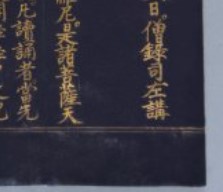 日。僧錄司左講
尼。是諸菩薩天
凡讀誦者當先